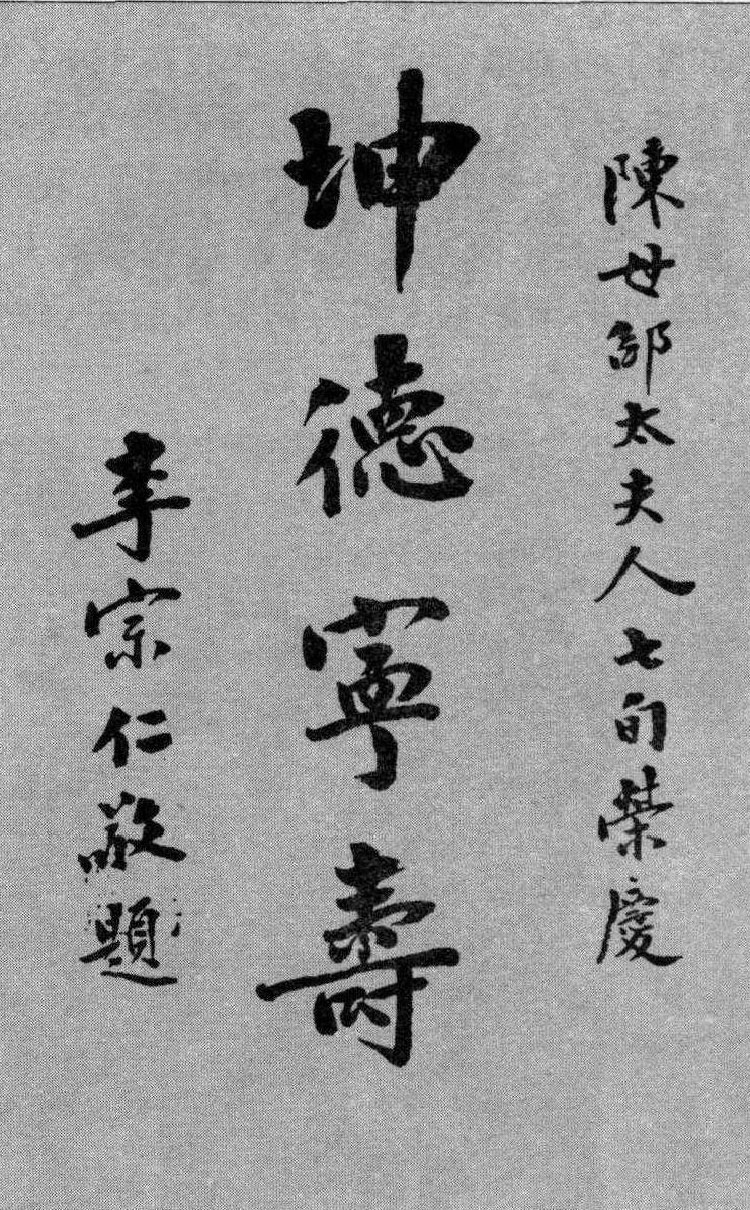 陳母鄒太夫人七旬榮慶
坤德寧壽
李宗仁敬題